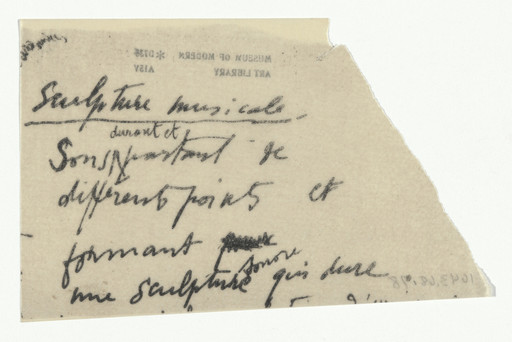 Sculpture musicale
durant et
Sons partant de
différents points et
formant
sonore
une sculpture qui dure